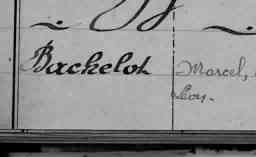 Bachelot Marcel,